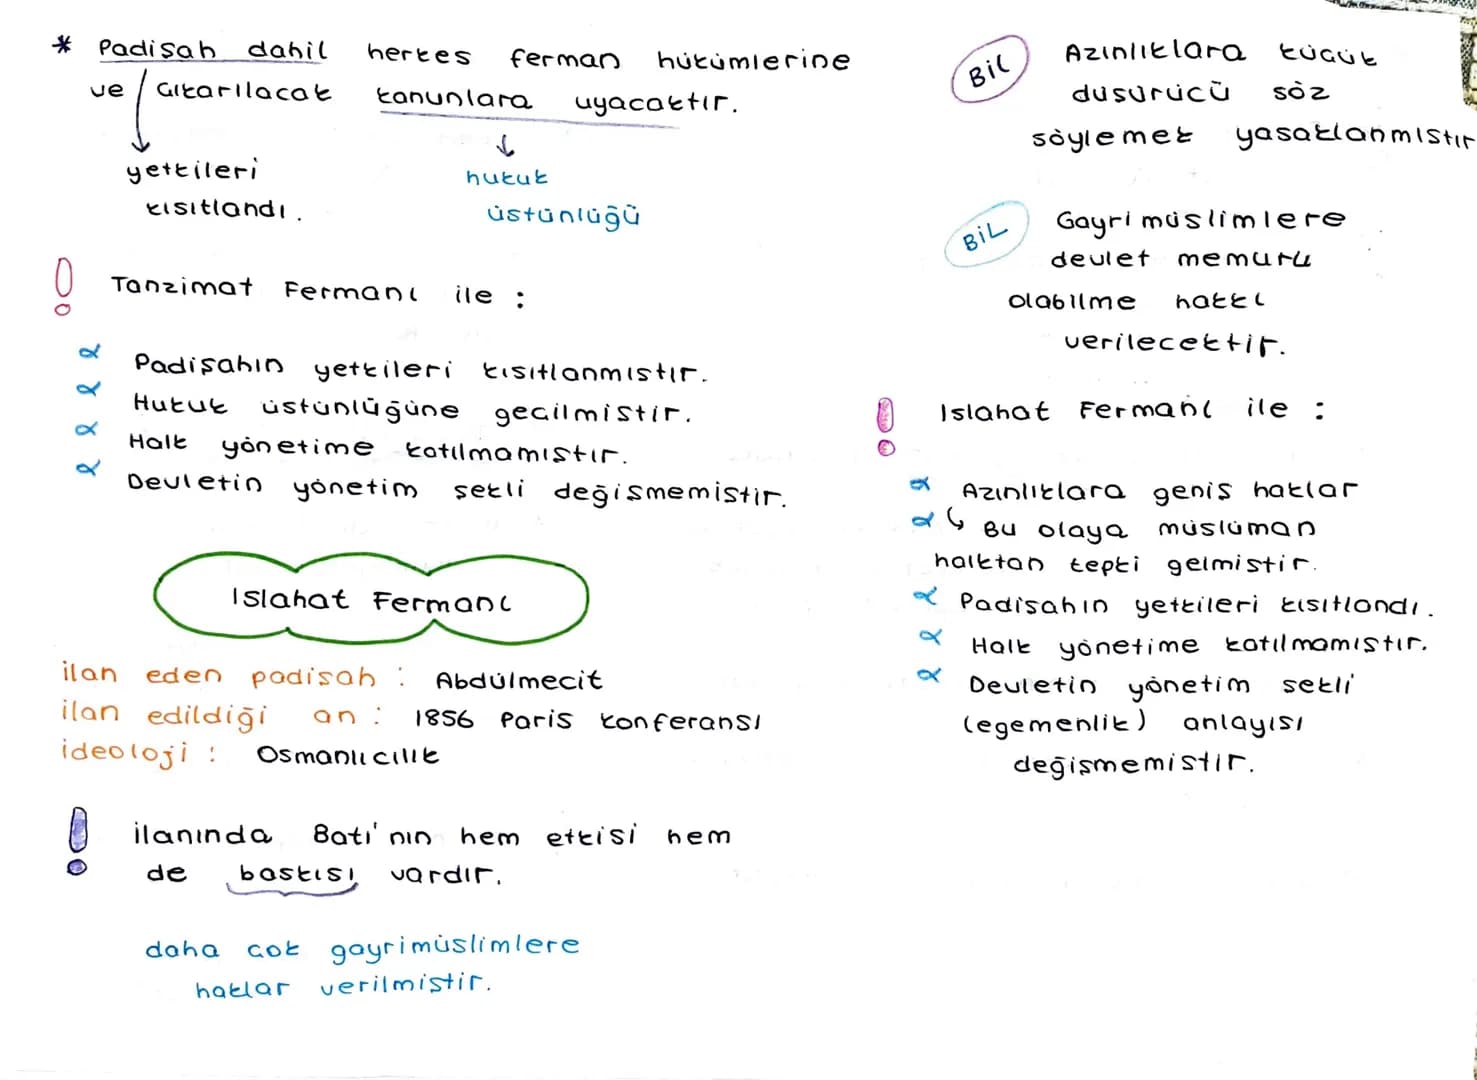 * Padişah dahil herkes ferman hükümlerine
ve çıkarılacak kanunlara uyacaktır.
yetkileri
kısıtlandı.
hukuk
üstünlüğü
! Tanzimat Fermanı ile :
α Padişahın yetkileri kısıtlanmıştır.
α Hukuk üstünlüğüne geçilmiştir.
α Halk yönetime katılmamıştır.
α Devletin yönetim şekli değişmemiştir.
Islahat Fermanı
ilan eden padişah : Abdülmecit
ilan edildiği an : 1856 Paris konferansı
ideoloji : Osmanlıcılık
! ilanında Batı'nın hem etkisi hem
de baskısı vardır.
daha çok gayrimüslimlere
haklar verilmiştir.
BİL Azınlıklara küçük
düşürücü söz
söylemek yasaklanmıştır
BİL Gayrimüslimlere
devlet memuru
olabilme hakkı
verilecektir.
! Islahat Fermanı ile :
α Azınlıklara geniş haklar
α ↳ Bu olaya müslüman
halktan tepki gelmiştir.
α Padişahın yetkileri kısıtlandı.
α Halk yönetime katılmamıştır.
α Devletin yönetim şekli
(egemenlik) anlayışı
değişmemiştir.